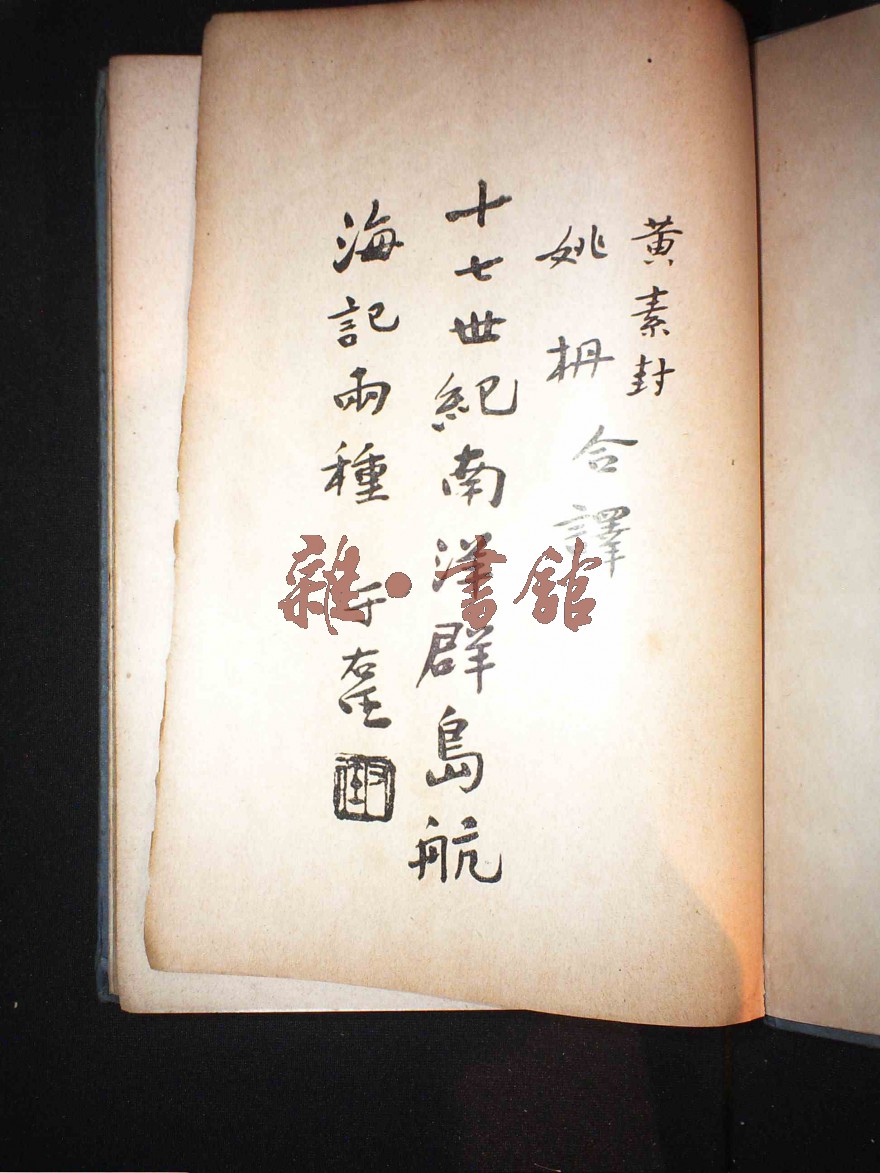 黃素封
姚枬 合譯
十七世紀南洋群島航
海記兩種 于右任
雜·書館